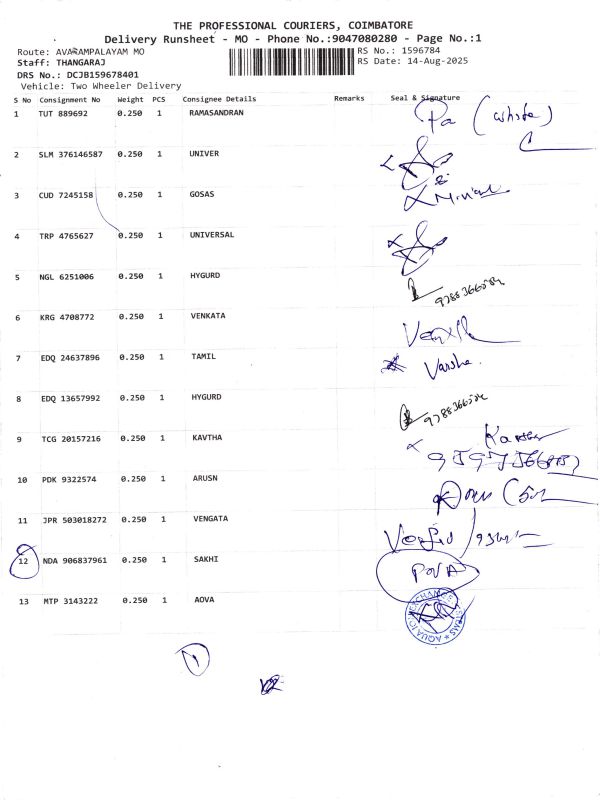 THE PROFESSIONAL COURIERS, COIMBATORE
Delivery Runsheet - MO - Phone No.:9047080280 - Page No.:1
Route: AVARAMPALAYAM MO RS No.: 1596784
Staff: THANGARAJ RS Date: 14-Aug-2025
DRS No.: DCJB159678401
Vehicle: Two Wheeler Delivery
S No Consignment No Weight PCS Consignee Details Remarks Seal & Signature
1 TUT 889692 0.250 1 RAMASANDRAN
2 SLM 376146587 0.250 1 UNIVER
3 CUD 7245158 0.250 1 GOSAS
4 TRP 4765627 0.250 1 UNIVERSAL
5 NGL 6251006 0.250 1 HYGURD
6 KRG 4708772 0.250 1 VENKATA
7 EDQ 24637896 0.250 1 TAMIL Varsha.
8 EDQ 13657992 0.250 1 HYGURD
9 TCG 20157216 0.250 1 KAVTHA
10 PDK 9322574 0.250 1 ARUSN
11 JPR 503018272 0.250 1 VENGATA
12 NDA 906837961 0.250 1 SAKHI POVA
13 MTP 3143222 0.250 1 AOVA
1